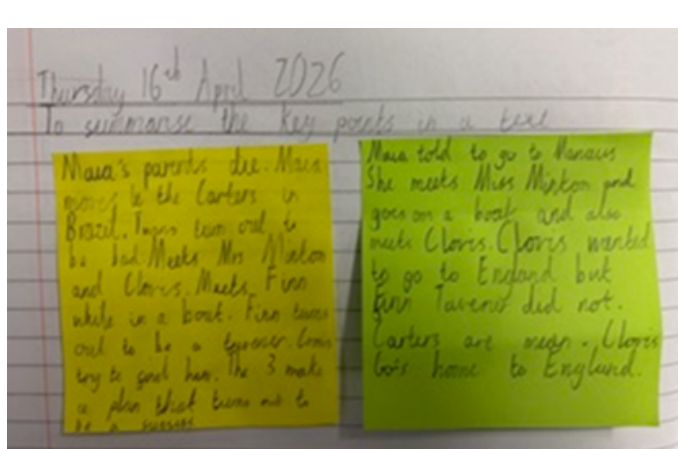 Thursday 16th April 2026
To summarise the key points in a text
Maia's parents die. Maia
moves to the Carters in
Brazil. turn out to
be bad. Meets Mrs Minton
and Clovis. Meets Finn
while in a boat. Finn turns
out to be a
try to find him. The 3 make
a plan that turns out to
be a success
Maia told to go to Manaus
She meets Miss Minton and
goes on a boat and also
meets Clovis. Clovis wanted
to go to England but
Finn Taverner did not.
Carters are mean. Clovis
Go's home to England.